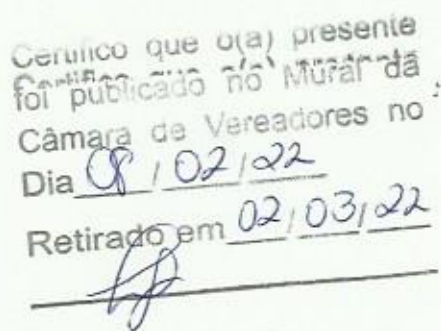 Certifico que o(a) presente
foi publicado no Mural da
Câmara de Vereadores no
Dia 08 / 02 / 22
Retirado em 02 / 03 / 22